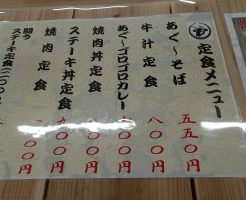 定食メニュー
あぐ~そば 五五〇円
牛汁定食 八〇〇円
あぐ~ゴロゴロカレー
焼肉丼定食 八〇〇円
ステーキ丼定食 九〇〇円
焼肉定食
闘うステーキ定食